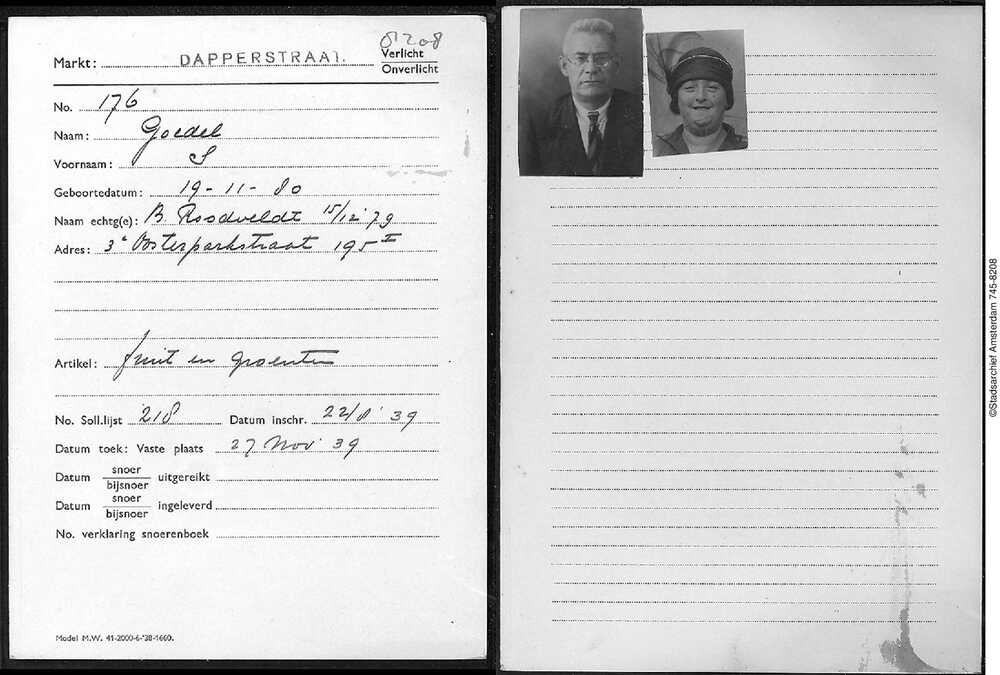 8208
Markt: DAPPERSTRAAT. Verlicht
Onverlicht
No. 176
Naam: Goedel
Voornaam: S
Geboortedatum: 19-11-80
Naam echtg(e): B. Roodveldt 15/12 79
Adres: 3e Oosterparkstraat 195 I
Artikel: fruit en groenten
No. Soll.lijst 218 Datum inschr. 22/8' 39
Datum toek: Vaste plaats 27 Nov' 39
Datum snoer/bijsnoer uitgereikt
Datum snoer/bijsnoer ingeleverd
No. verklaring snoerenboek
Model M.W. 41-2000-6-'38-1660.
©Stadsarchief Amsterdam 745-8208